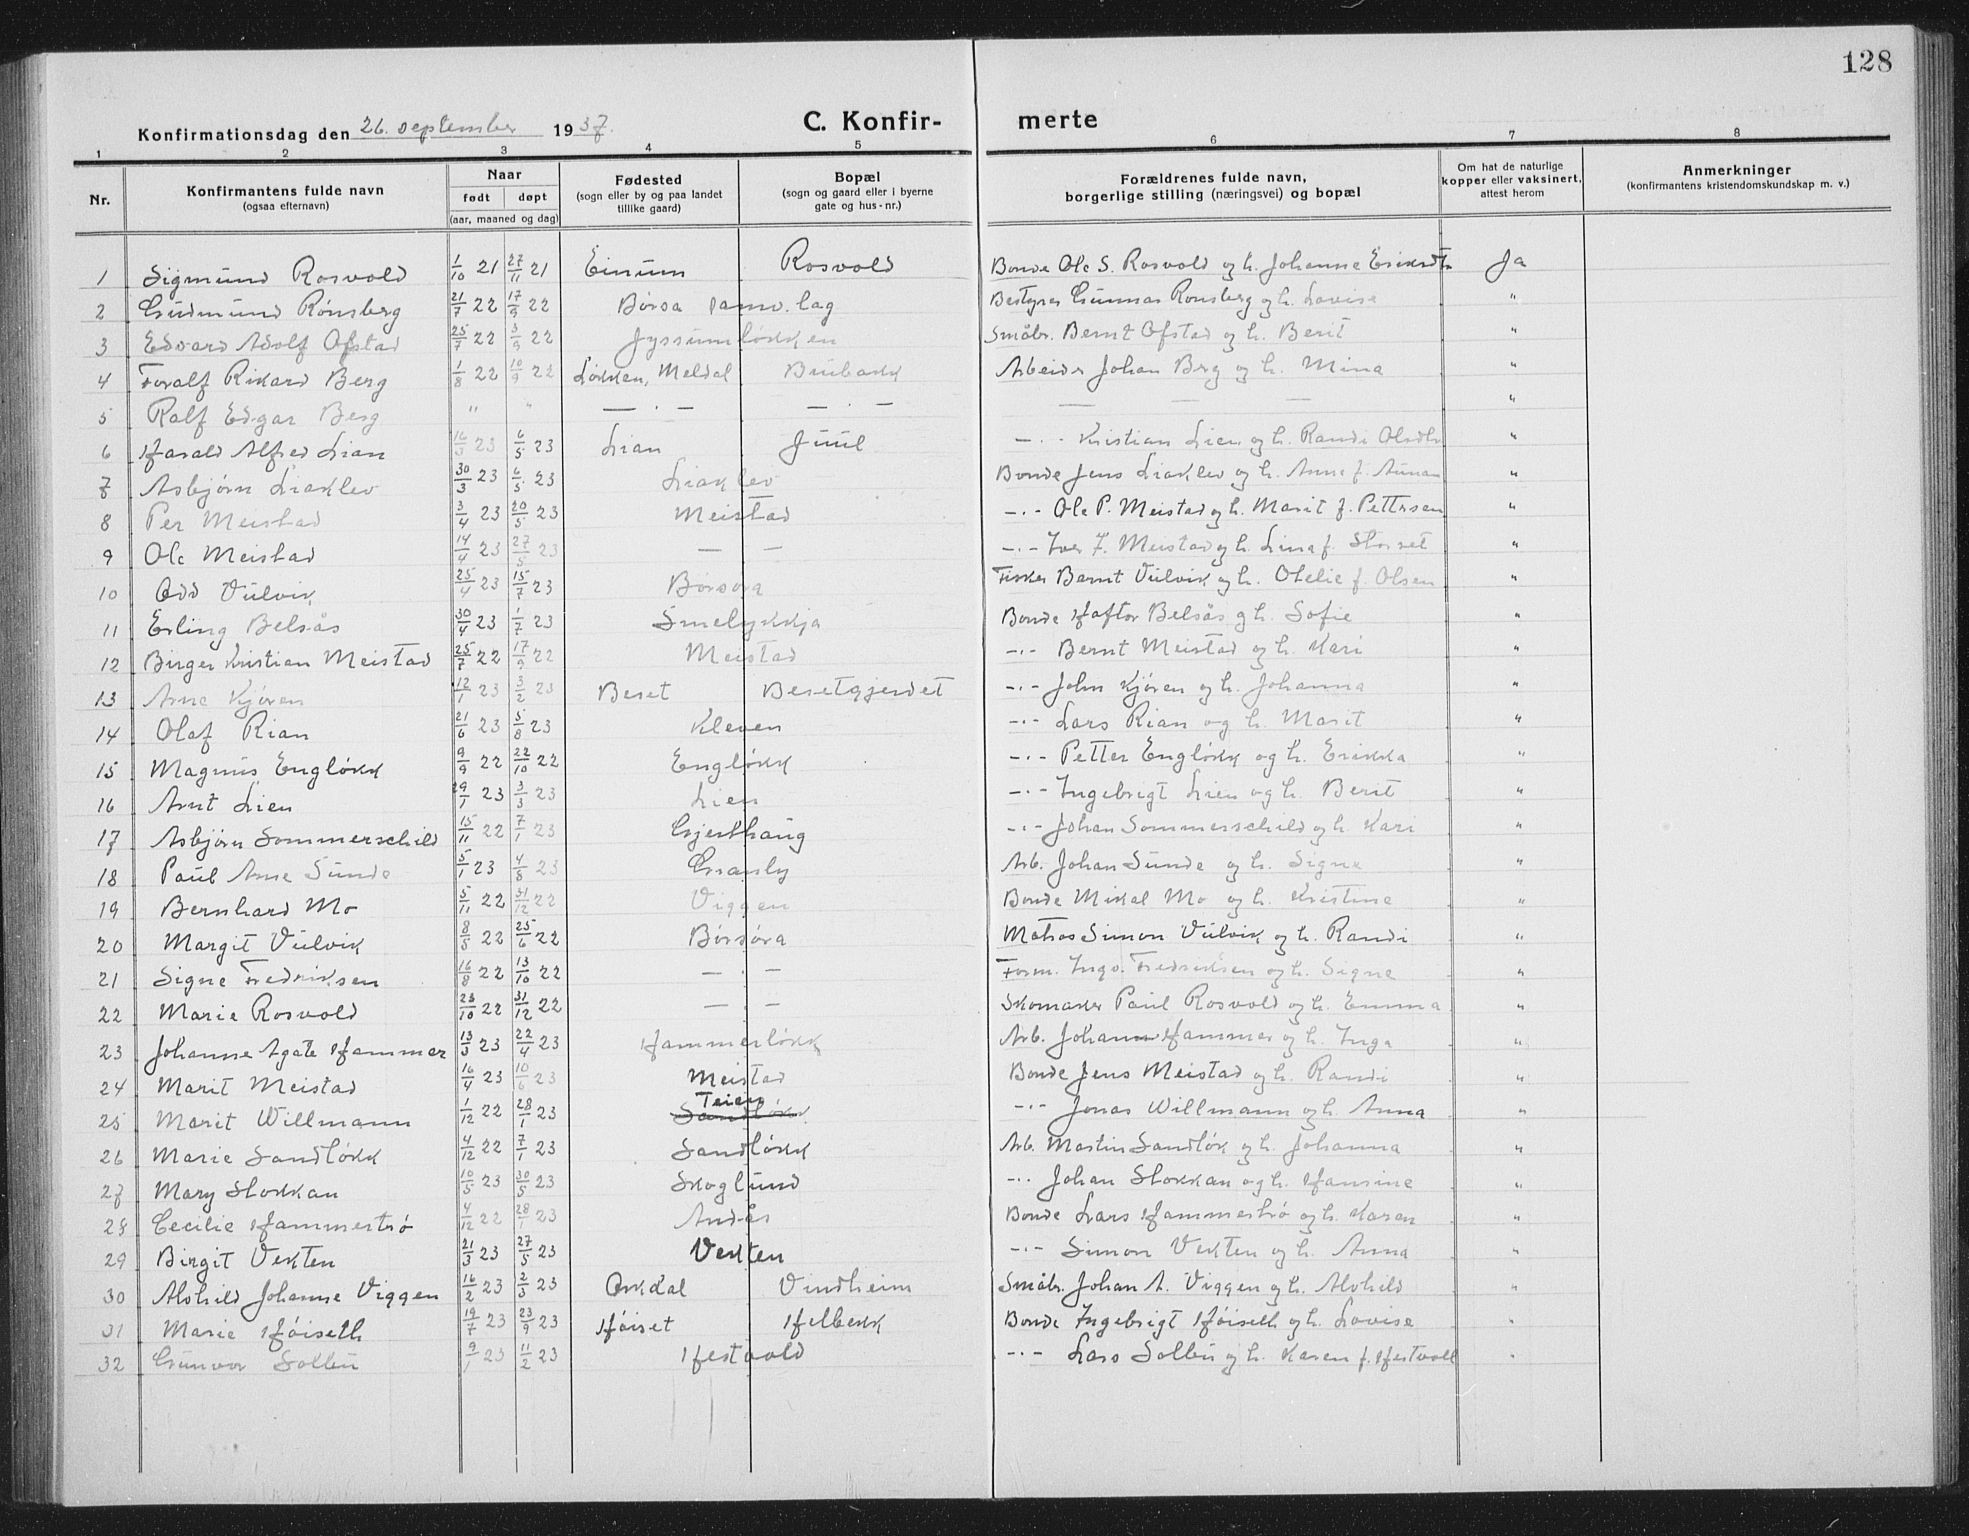 128
Konfirmationsdag den 26. september 1937.
C. Konfirmerte
1 2 3 4 5 6 7 8
Nr. | Konfirmantens fulde navn (ogsaa efternavn) | Naar født døpt (aar, maaned og dag) | Fødested (sogn eller by og paa landet tillike gaard) | Bopæl (sogn og gaard eller i byerne gate og hus-nr.) | Forældrenes fulde navn, borgerlige stilling (næringsvei) og bopæl | Om hat de naturlige kopper eller vaksinert, attest herom | Anmerkninger (konfirmantens kristendomskundskap m. v.)
1 Sigmund Rosvold 1/10 21 27/11 21 Einum Rosvold Bonde Ole S. Rosvold og h. Johanne Eriksdtr Ja
2 Gudmund Rønsberg 21/7 22 17/9 22 Børsa samv.lag Bestyrer Gunnar Rønsberg og h. Lovise "
3 Edvard Adolf Ofstad 25/7 22 3/9 22 Jyssumløkken Småbr. Bernt Ofstad og h. Berit "
4 Toralf Rikard Berg 1/8 22 10/9 22 Løkken, Meldal Brubakk Arbeider Johan Berg og h. Mina "
5 Rolf Edgar Berg " " — . — — . — — — — "
6 Harald Alfred Lian 16/3 23 6/5 23 Lian Juul -.- Kristian Lien og h. Randi Olsdtr "
7 Asbjørn Liaklev 30/3 23 6/5 23 Liaklev Bonde Jens Liaklev og h. Anne f. Aunan "
8 Per Meistad 3/4 23 20/5 23 Meistad -.- Ole P. Meistad og h. Marit f. Pettersen "
9 Ole Meistad 14/4 23 27/5 23 — — -.- Iver J. Meistad og h. Lina f. Storset "
10 Odd Viilvik 25/4 23 15/7 23 Børsøra Fisker Bernt Viilvik og h. Otelie f. Olsen "
11 Erling Belsås 30/4 23 1/7 23 Smelykkja Bonde Haftor Belsås og h. Sofie "
12 Birger Kristian Meistad 25/7 22 17/9 22 Meistad -.- Bernt Meistad og h. Kari "
13 Arne Kjøren 12/1 23 3/2 23 Beset Besetgjerdet -.- John Kjøren og h. Johanna "
14 Olaf Rian 21/6 23 5/8 23 Kleven -.- Lars Rian og h. Marit "
15 Magnus Engløkk 9/9 22 22/10 22 Engløkk -.- Petter Engløkk og h. Erikka "
16 Arnt Lien 29/1 23 3/3 23 Lien -.- Ingebrigt Lien og h. Berit "
17 Asbjørn Sommerschild 15/11 22 7/1 23 Gjesthaug -.- Johan Sommerschild og h. Kari "
18 Paul Arne Sunde 5/1 23 4/8 23 Granly Arb. Johan Sunde og h. Signe "
19 Bernhard Mo 5/11 22 31/12 22 Viggen Bonde Mikal Mo og h. Kristine "
20 Margit Viilvik 8/5 22 25/6 22 Børsøra Matros Simon Viilvik og h. Randi "
21 Signe Fredriksen 16/8 22 13/10 22 — — Form. Ingv. Fredriksen og h. Signe "
22 Marie Rosvold 23/10 22 31/12 22 — — Skomaker Paul Rosvold og h. Emma "
23 Johanne Agate Hammer 13/3 23 22/4 23 Hammerløkk Arb. Johan Hammer og h. Inga "
24 Marit Meistad 16/4 23 10/6 23 Meistad Bonde Jens Meistad og h. Randi "
25 Marit Willmann 1/12 22 28/1 23 Teien Sandløkk -.- Jonas Willmann og h. Anna "
26 Marie Sandløkk 4/12 22 7/1 23 Sandløkk Arb. Martin Sandløk og h. Johanna "
27 Mary Stokkan 10/5 23 30/5 23 Skoglund -.- Johan Stokkan og h. Hansine "
28 Cecilie Hammertrø 4/12 22 28/1 23 Andås Bonde Lars Hammertrø og h. Karen "
29 Birgit Vekten 21/3 23 27/5 23 Vekten -.- Simon Vekten og h. Anna "
30 Alvhild Johanne Viggen 16/2 23 2/3 23 Orkdal Vindheim Småbr. Johan A. Viggen og h. Alvhild "
31 Marie Høiseth 19/7 23 23/9 23 Høiset Helbekk Bonde Ingebrigt Høiseth og h. Lovise "
32 Gunvor Solbu 9/1 23 11/2 23 Hestvold -.- Lars Solbu og h. Karen f. Hestvoll "